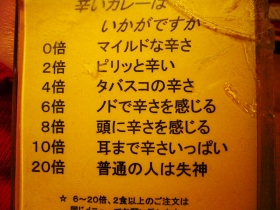 辛いカレーは
いかがですか
0倍 マイルドな辛さ
2倍 ピリッと辛い
4倍 タバスコの辛さ
6倍 ノドで辛さを感じる
8倍 頭に辛さを感じる
10倍 耳まで辛さいっぱい
20倍 普通の人は失神
☆ 6〜20倍、2食以上のご注文は